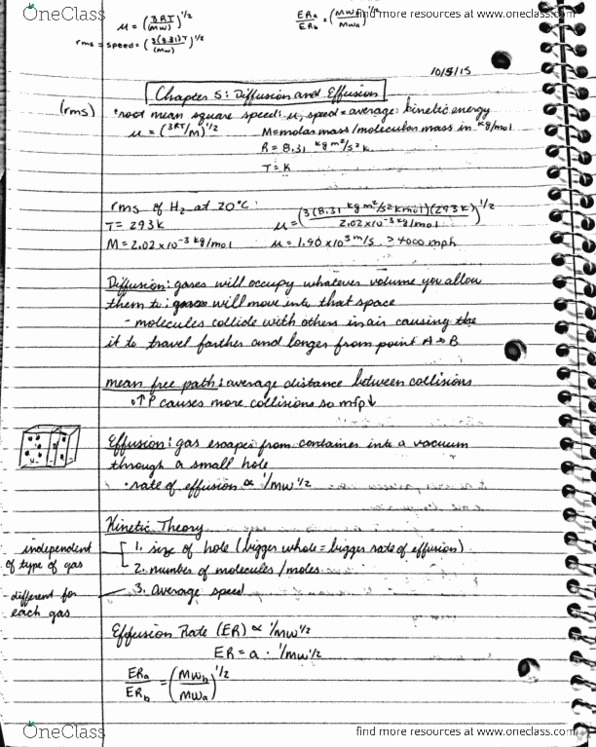 OneClass
find more resources at www.oneclass.com
μ = (3RT/(MW))^1/2
ERa/ERb = (MWb/MWa)^1/2
rms = speed = (3(8.31)T/(MW))^1/2
10/5/15
Chapter 5: Diffusion and Effusion
(rms) • root mean square speed: μ, speed = average kinetic energy
μ = (3RT/M)^1/2 M = molar mass/molecular mass in kg/mol
R = 8.31 kg m²/s² k
T = K
rms of H₂ at 20°C:
T = 293k μ = (3(8.31 kg m²/s² kmol)(293k)/2.02x10⁻³ kg/mol)^1/2
M = 2.02x10⁻³ kg/mol μ = 1.90x10³ m/s > 4000 mph
Diffusion: gases will occupy whatever volume you allow
them to: gases will move into that space
- molecules collide with others in air causing the
it to travel farther and longer from point A → B
mean free path: average distance between collisions
• ↑P causes more collisions so mfp↓
Effusion: gas escapes from container into a vacuum
through a small hole
• rate of effusion ∝ 1/MW^1/2
Kinetic Theory
independent of type of gas
1. size of hole (bigger whole = bigger rate of effusion)
2. number of molecules/moles
different for each gas
3. average speed
Effusion Rate (ER) ∝ 1/MW^1/2
ER = a · 1/MW^1/2
ERa/ERb = (MWb/MWa)^1/2
OneClass
find more resources at www.oneclass.com